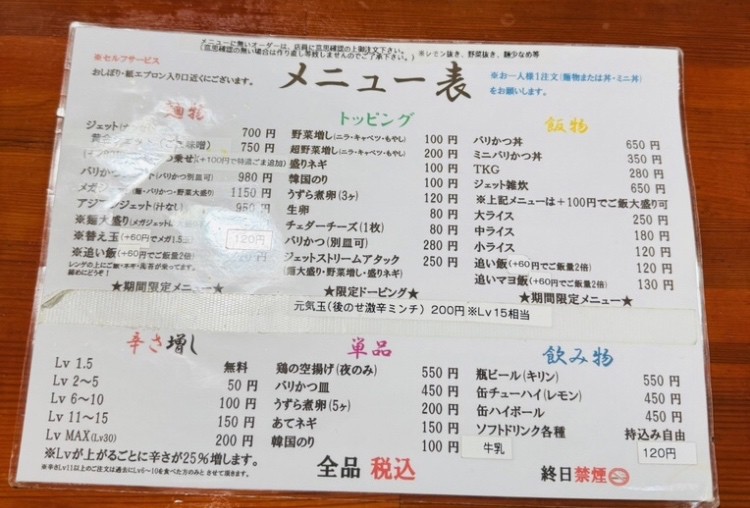 メニューに無いオーダーは、店員に意思確認の上御注文下さい。 ※シモン抜き、野菜抜き、麺少なめ等
(意思確認の無い場合は作り直し等致しませんのでご了承下さい。)
※セルフサービス
おしぼり・紙エプロン入り口近くにございます。
メニュー表
※お一人様1注文(麺物または丼・ミニ丼)
をお願いします。
麺
700円
750円
乗せ(+100円で特濃ごま追加)
バリかつ (バリかつ別皿可) 980円
メガジェット(麺・バリかつ・野菜大盛り) 1150円
アジアンジェット(汁ない) 950円
※麺大盛り(メガジェットは
※替え玉(+60円でメガ1.5玉) 120円
※追い飯(+60円でご飯量2倍)
★期間限定メニュー★
トッピング
野菜増し(ニラ・キャベツ・もやし) 100円
超野菜増し(ニラ・キャベツ・もやし) 200円
盛りネギ 100円
韓国のり 100円
うずら煮卵(3ヶ) 120円
生卵 80円
チェダーチーズ(1枚) 80円
バリかつ(別皿可) 280円
ジェットストリームアタック 250円
(麺大盛り・野菜増し・盛りネギ)
★限定トッピング★
飯物
バリかつ丼 650円
ミニバリかつ丼 350円
TKG 280円
ジェット雑炊 650円
※上記メニューは+100円でご飯大盛り可
大ライス 250円
中ライス 180円
小ライス 110円
追い飯(+60円でご飯量2倍) 120円
追いマヨ飯(+60円でご飯量2倍) 130円
★期間限定メニュー★
元気玉(後のせ激辛ミンチ) 200円 ※Lv15相当
辛さ増し
Lv 1.5 無料
Lv 2～5 50円
Lv 6～10 100円
Lv 11～15 150円
Lv MAX(Lv30) 200円
※Lvが上がるごとに辛さが25%増します。
※辛さLv11以上のご注文は過去にLv6～10を食べた方のみと させて頂いております。
単品
鶏の空揚げ(夜のみ) 550円
バリかつ皿 450円
うずら煮卵(5ヶ) 200円
あてネギ 150円
韓国のり 100円
飲み物
瓶ビール(キリン) 550円
缶チューハイ(レモン) 450円
缶ハイボール 450円
ソフトドリンク各種 持込み自由
牛乳 120円
全品 税込
終日禁煙